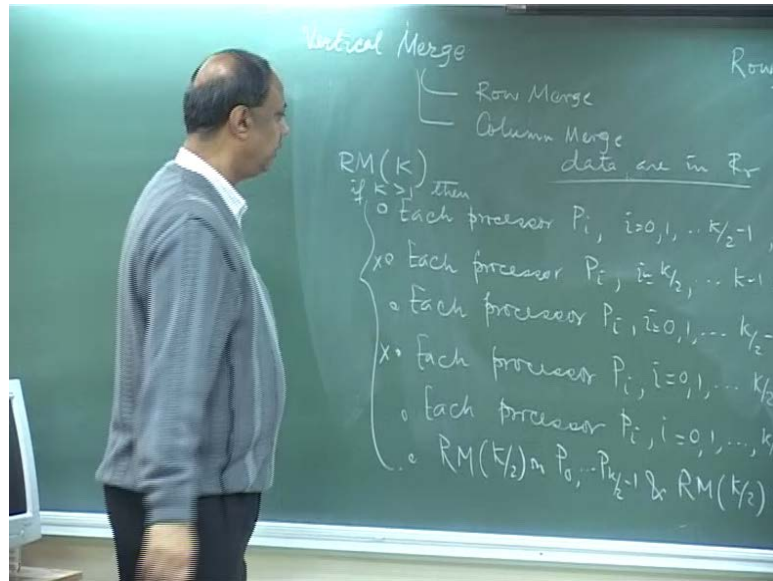 Vertical Merge
Row
Row Merge
Column Merge
data are in Rr
RM(K)
if K>1 then
o Each processor Pi, i=0,1, ... k/2-1,
xo Each processor Pi, i=k/2, ... k-1
o Each processor Pi, i=0,1, ... k/2-
x• Each processor Pi, i=0,1, ... k/2
o Each processor Pi, i=0,1, ..., k/
• RM(k/2) on P0, ... Pk/2-1 & RM(k/2)